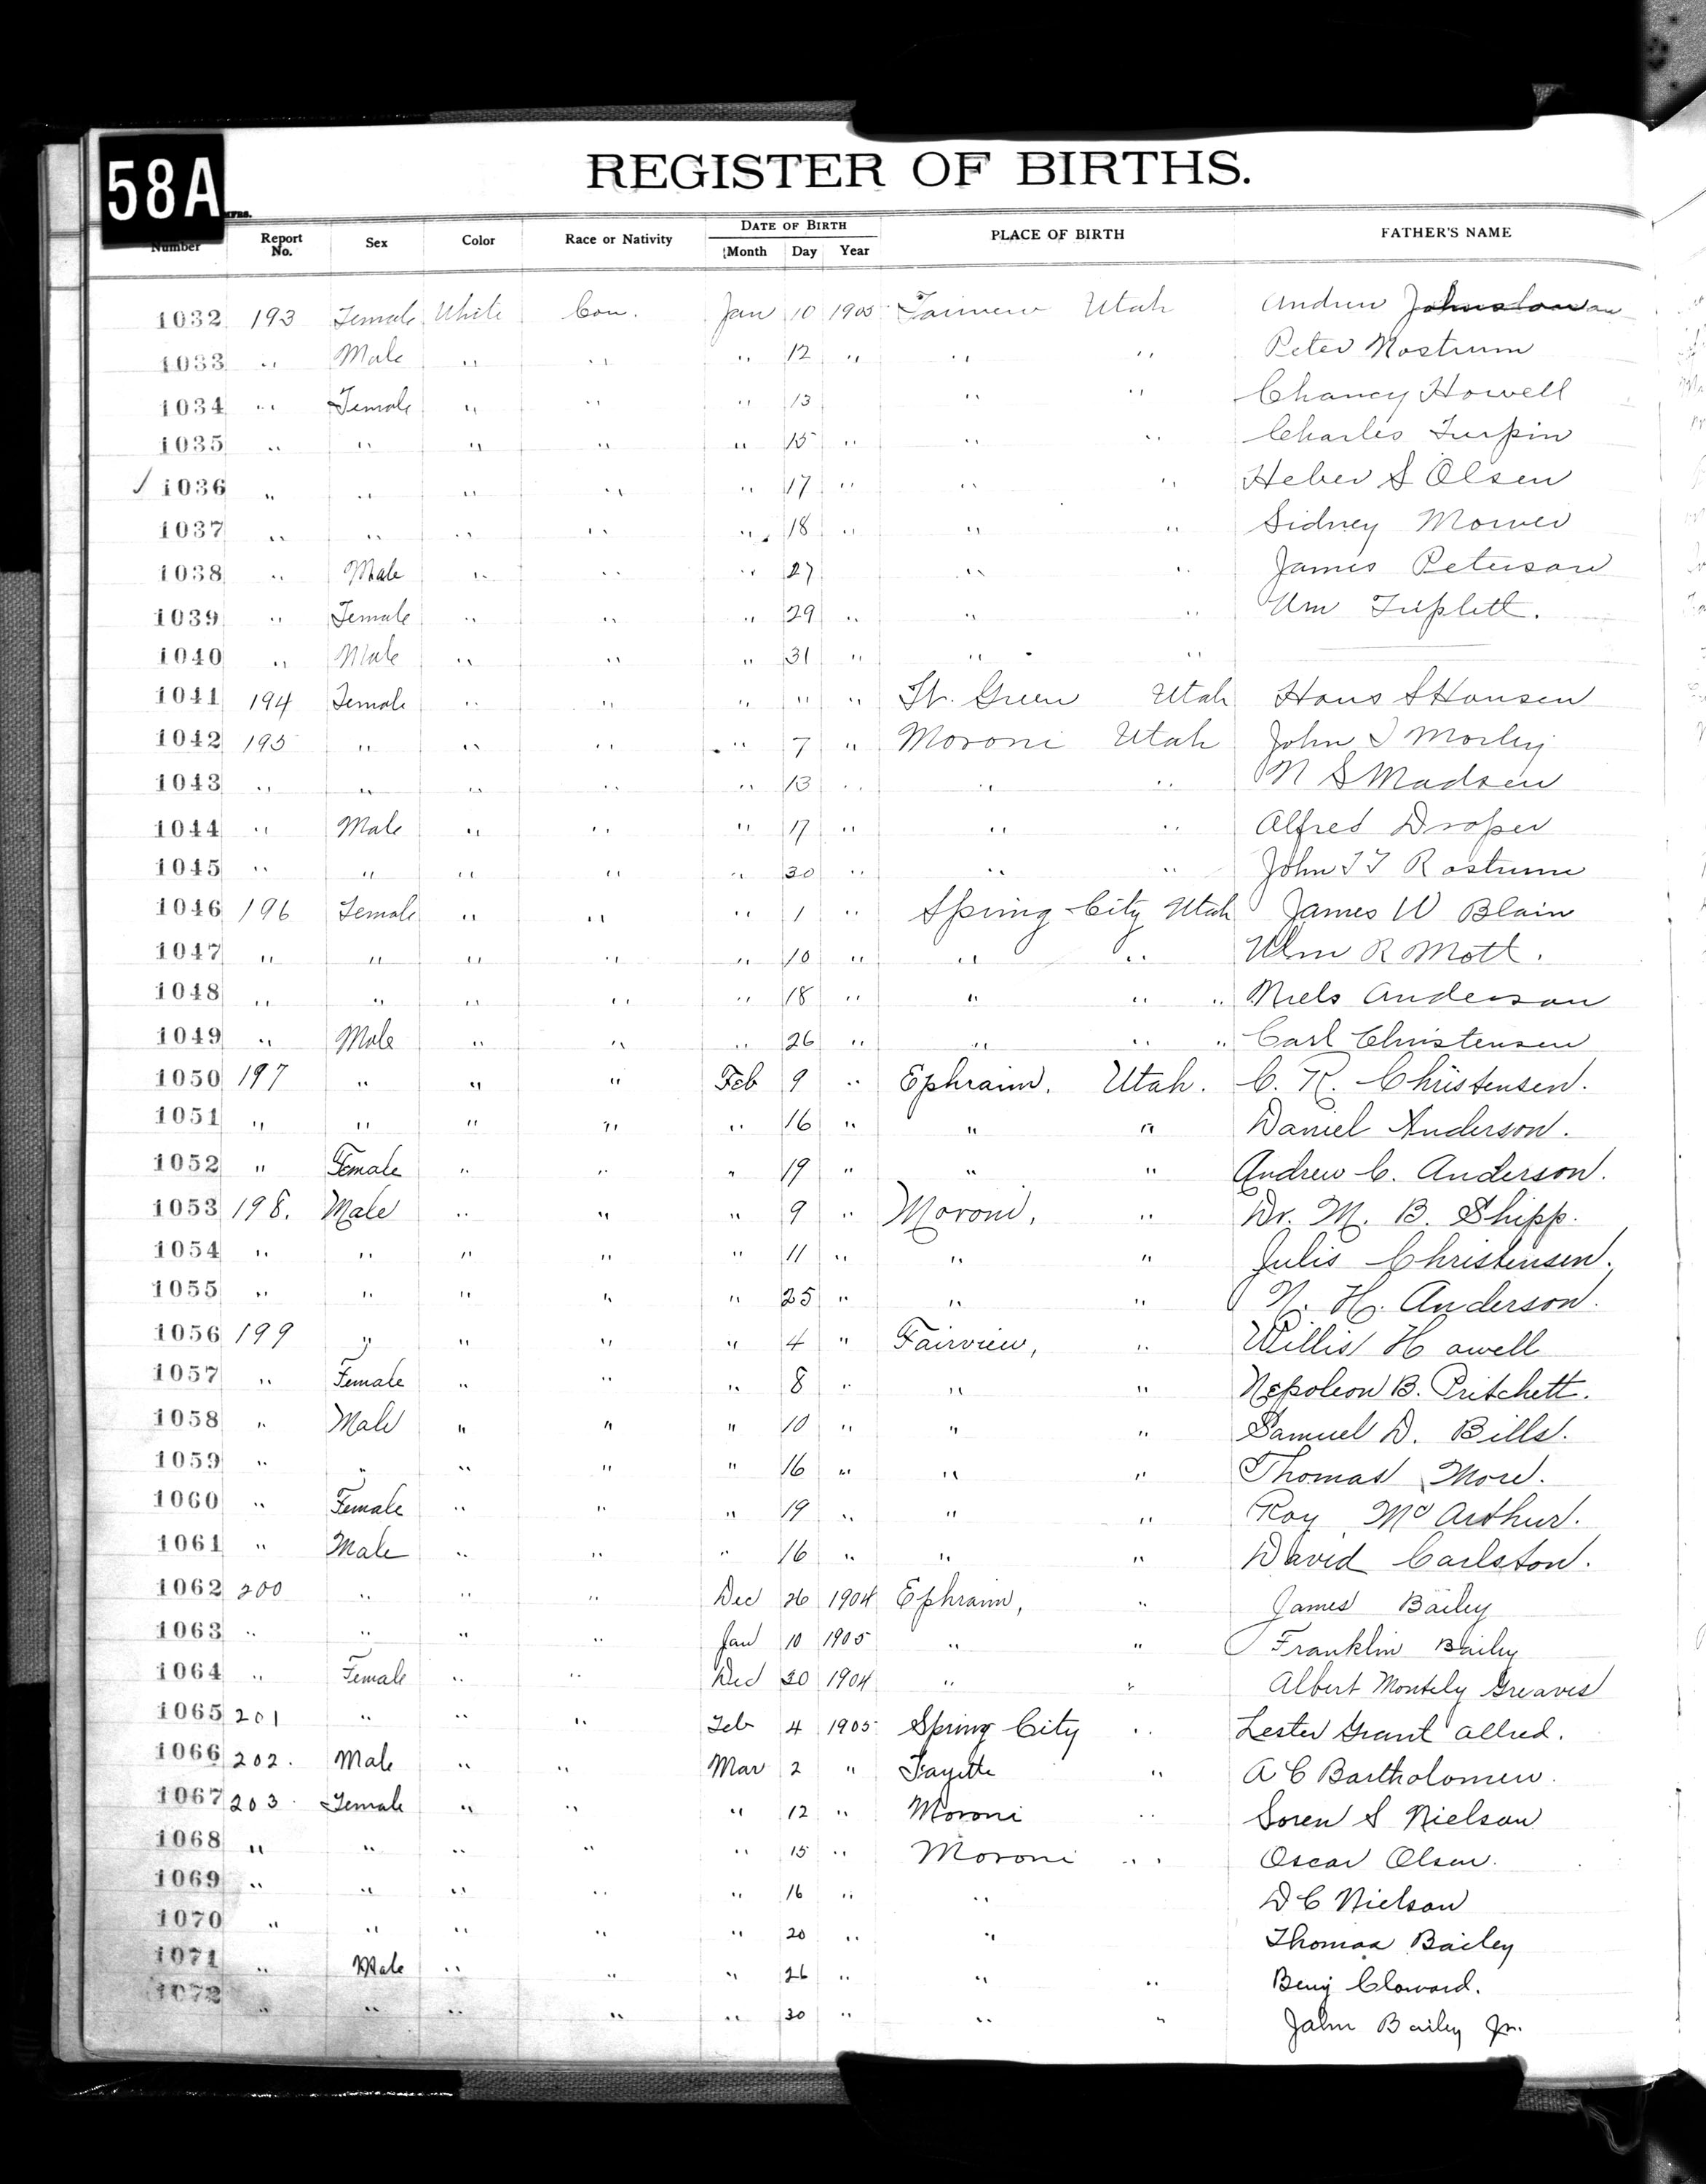 58A
REGISTER OF BIRTHS.
Number Report No. Sex Color Race or Nativity DATE OF BIRTH Month Day Year PLACE OF BIRTH FATHER'S NAME
1032 193 Female White Cau. Jan 10 1905 Fairview Utah Andrew
1033 " Male " " " 12 " " " Peter Nostrum
1034 " Female " " " 13 " " Chancy Howell
1035 " " " " " 15 " " " Charles Turpin
/ 1036 " " " " " 17 " " " Heber S Olsen
1037 " " " " " 18 " " " Sidney Mower
1038 " Male " " " 27 " " James Peterson
1039 " Female " " " 29 " " " Wm Triplett.
1040 " Male " " " 31 " " "
1041 194 Female " " " " " Ft. Green Utah Hans S Hansen
1042 195 " " " " 7 " Moroni Utah John Morley
1043 " " " " " 13 " " " N S Madsen
1044 " Male " " " 17 " " " Alfred Draper
1045 " " " " " 30 " " " John Rostrum
1046 196 Female " " " 1 " Spring City Utah James W Blain
1047 " " " " " 10 " " " Wm R Mott.
1048 " " " " " 18 " " " " Niels Anderson
1049 " Male " " " 26 " " " " Carl Christensen
1050 197 " " " Feb 9 " Ephraim. Utah. C. R. Christensen.
1051 " " " " " 16 " " " Daniel Anderson.
1052 " Female " " " 19 " " " Andrew C. Anderson.
1053 198. Male " " " 9 " Moroni, " Dr. M. B. Shipp.
1054 " " " " " 11 " " " Julis Christensen.
1055 " " " " " 25 " " " N. H. Anderson.
1056 199 " " " " 4 " Fairview, " Willis Howell
1057 " Female " " " 8 " " " Nepoleon B. Pritchett.
1058 " Male " " " 10 " " " Samuel D. Bills.
1059 " " " " " 16 " " " Thomas More.
1060 " Female " " " 19 " " " Roy McArthur.
1061 " Male " " " 16 " " " David Carlston.
1062 200 " " " Dec 26 1904 Ephraim, " James Bailey
1063 " " " " Jan 10 1905 " " Franklin Bailey
1064 " Female " " Dec 30 1904 " " Albert Greaves
1065 201 " " " Feb 4 1905 Spring City " Lester Grant Allred.
1066 202. Male " " Mar 2 " Fayette " A C Bartholomew.
1067 203 Female " " " 12 " Moroni " Soren S Nielson
1068 " " " " " 15 " Moroni " " Oscar Olsen.
1069 " " " " " 16 " " D C Nielson
1070 " " " " " 20 " " Thomas Bailey
1071 " Male " " " 26 " " " Benj Cloward.
1072 " " " " " 30 " " " John Bailey Jr.